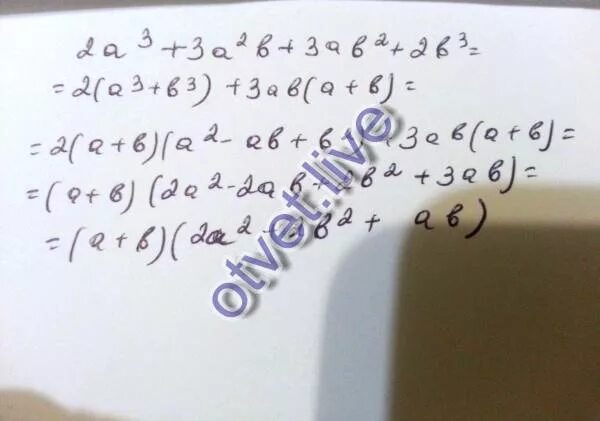 2a³ + 3a²b + 3ab² + 2b³ =
= 2(a³ + b³) + 3ab(a + b) =
= 2(a + b)(a² - ab + b 3ab(a + b) =
= (a + b)(2a² - 2ab + 2b² + 3ab) =
= (a + b)(2a² + 2b² + ab)
otvet.live